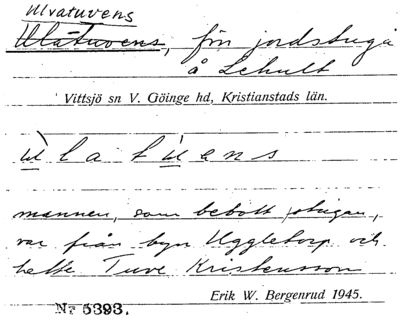 Ulvatuvens
Ulatuvens, för jordstuga
å Lehult
Vittsjö sn V. Göinge hd, Kristianstads län.
ul a t u e n s
mannen, som bebott stugan,
var från byn Uggletorp och
hette Tuve Kristensson
Erik W. Bergenrud 1945.
Nr 5393.